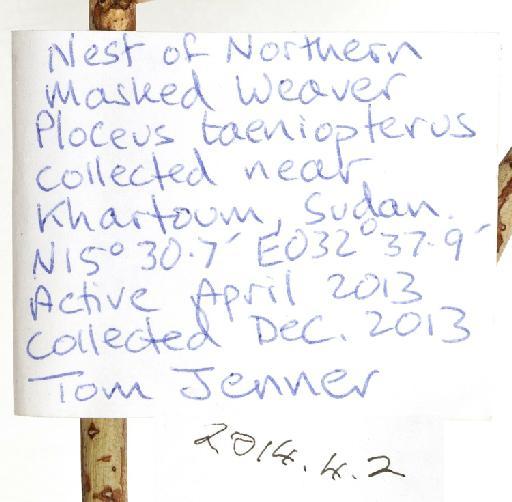 Nest of Northern
Masked Weaver
Ploceus taeniopterus
collected near
Khartoum, Sudan.
N15° 30.7′ E032° 37.9′
Active April 2013
Collected Dec. 2013
Tom Jenner
2014.4.2